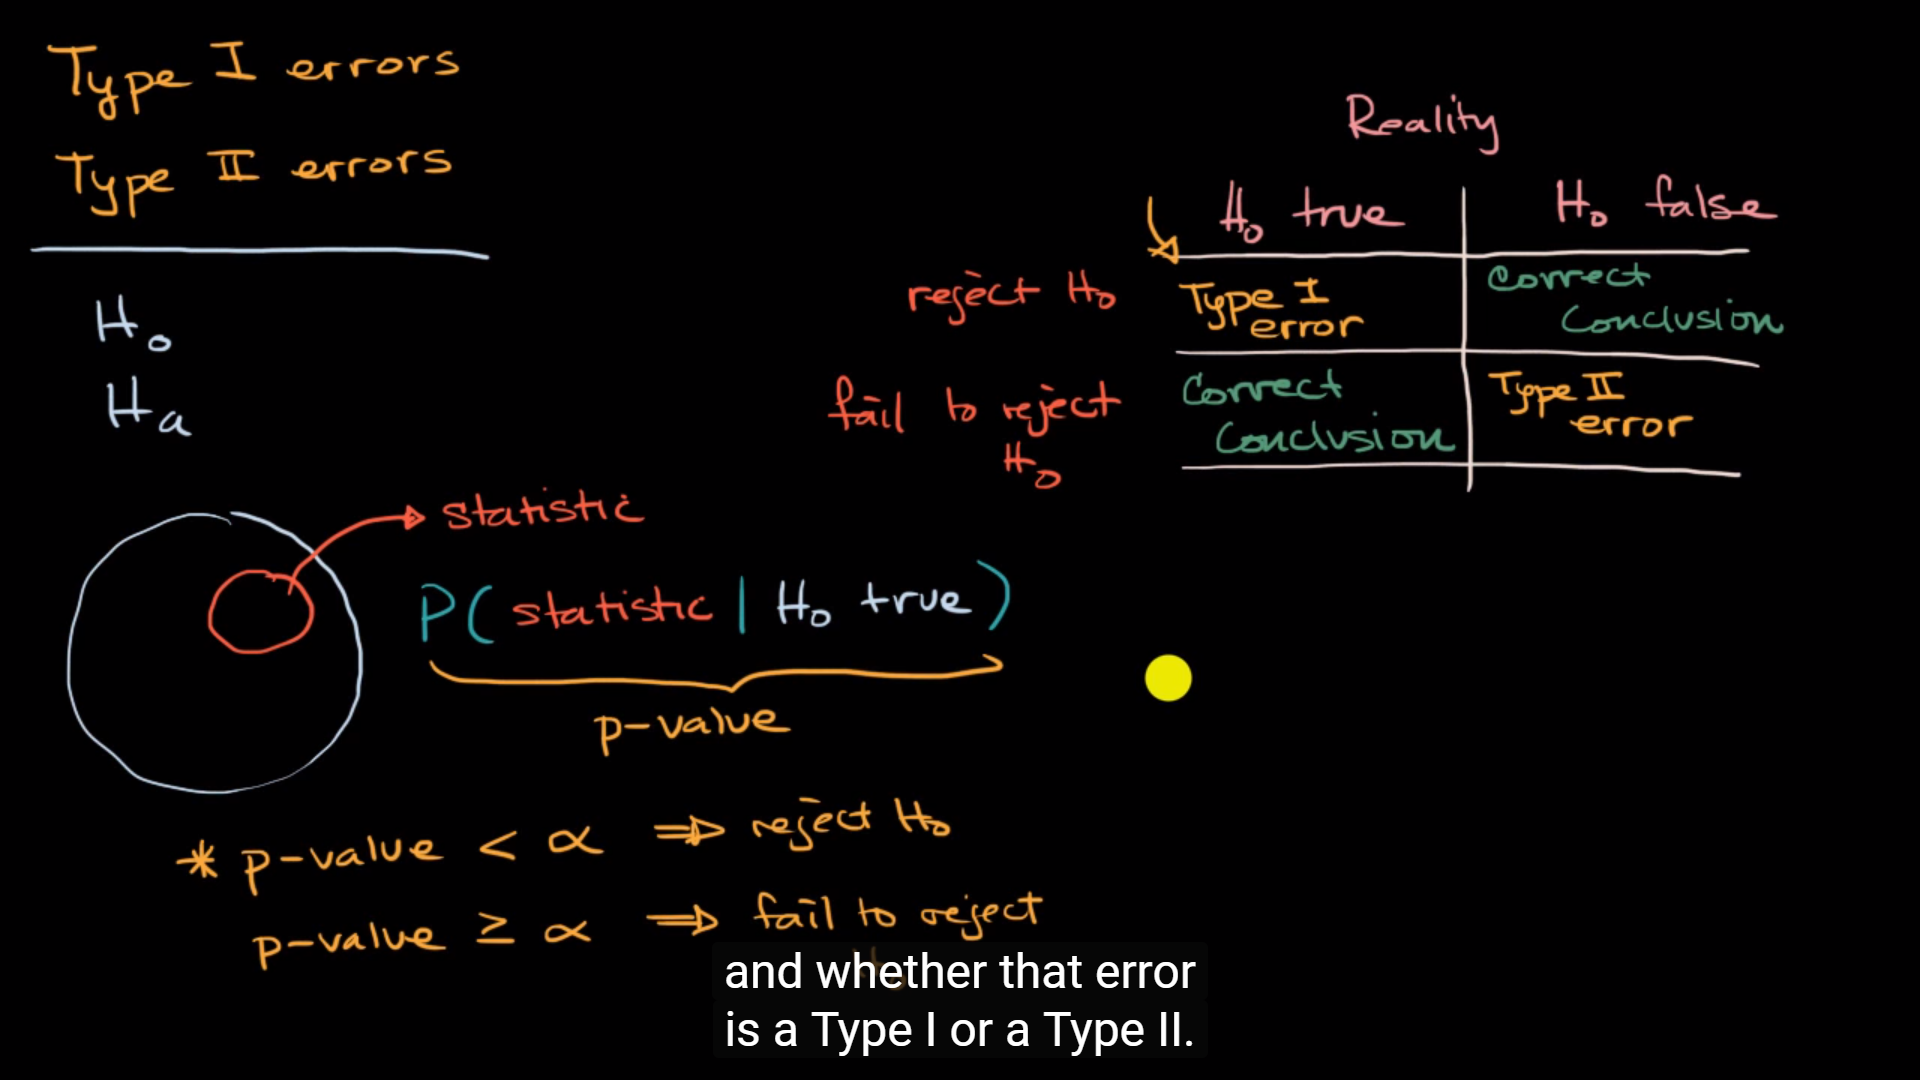 Type I errors
Type II errors
H₀
Hₐ
statistic
P( statistic | H₀ true )
p-value
* p-value < α ⇒ reject H₀
p-value ≥ α ⇒ fail to reject
Reality
H₀ true H₀ false
reject H₀ Type I error Correct Conclusion
fail to reject H₀ Correct Conclusion Type II error
and whether that error
is a Type I or a Type II.